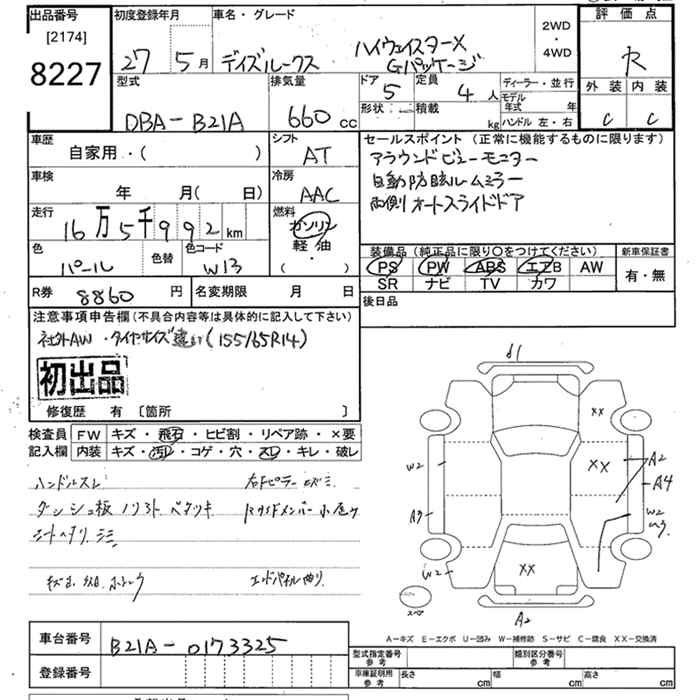 出品番号
[2174]
8227
初度登録年月
27 5月
車名・グレード
デイズルークス ハイウェイスターX
Gパッケージ
2WD
・
4WD
評価点
R
外装 内装
C C
型式
DBA-B21A
排気量
660 cc
ドア
5
形状
定員
4 人
積載
kg
ディーラー・並行
モデル年式 年
ハンドル 左・右
車歴
自家用・( )
シフト
AT
セールスポイント(正常に機能するものに限ります)
アラウンドビューモニター
自動防眩ルームミラー
両側オートスライドドア
車検
年 月( 日)
冷房
AAC
走行
16万5千992km
燃料
ガソリン
軽油
( ・ )
色
パール
色替
色コード
W13
装備品(純正品に限り○をつけてください)
PS PW ABS エアB AW
SR ナビ TV カワ
新車保証書
有・無
R券 8860 円
名変期限 月 日
後日品
注意事項申告欄(不具合内容等は具体的に記入して下さい)
社外AW・タイヤサイズ違い(155/65R14)
初出品
修復歴 有 [箇所 ]
検査員
記入欄
FW キズ・飛石・ヒビ割・リペア跡・×要
内装 キズ・汚レ・コゲ・穴・スレ・キレ・破レ
ハンドルスレ
ダッシュ板 ノリあと ベタツキ
エンドパネル曲り
d1
XX
XX
XX
W2
A3
W2
A2
A4
W2
A2
スペア
A-キズ E-エクボ U-凹み W-補修跡 S-サビ C-腐食 XX-交換済
車台番号
B21A-0173325
登録番号
型式指定番号
参考
類別区分番号
参考
車庫証明用
参考
長さ cm 幅 cm 高さ cm